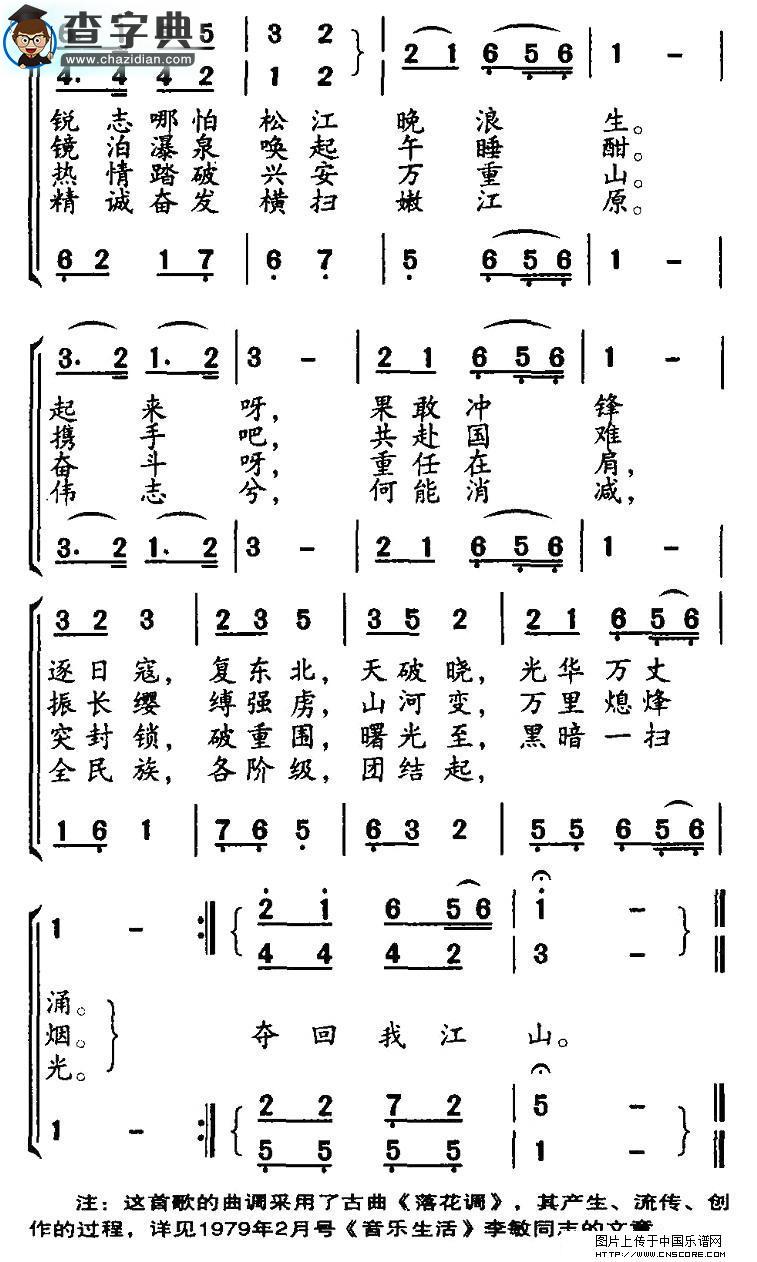 查字典
www.chazidian.com
5 3 2 2 1 6 5 6 1 -
4. 4 4 2 1 2
锐志哪怕松江晚浪生。
镜泊瀑泉唤起午睡酣。
热情踏破兴安万重山。
精诚奋发横扫嫩江原。
6 2 1 7 6 7 5 6 5 6 1 -
3. 2 1. 2 3 - 2 1 6 5 6 1 -
起来呀，果敢冲锋
携手吧，共赴国难
奋斗呀，重任在肩，
伟志兮，何能消减，
3. 2 1. 2 3 - 2 1 6 5 6 1 -
3 2 3 2 3 5 3 5 2 2 1 6 5 6
逐日寇，复东北，天破晓，光华万丈
振长缨，缚强虏，山河变，万里熄烽
突封锁，破重围，曙光至，黑暗一扫
全民族，各阶级，团结起，
1 6 1 7 6 5 6 3 2 5 5 6 5 6
1 - 2 1 6 5 6 1 -
4 4 4 2 3 -
涌。
烟。
光。
夺回我江山。
1 - 2 2 7 2 5 -
5 5 5 5 1 -
注：这首歌的曲调采用了古曲《落花调》，其产生、流传、创
作的过程，详见1979年2月号《音乐生活》李敏同志的文章
图片上传于中国乐谱网
HTTP://WWW.CNSCORE.COM